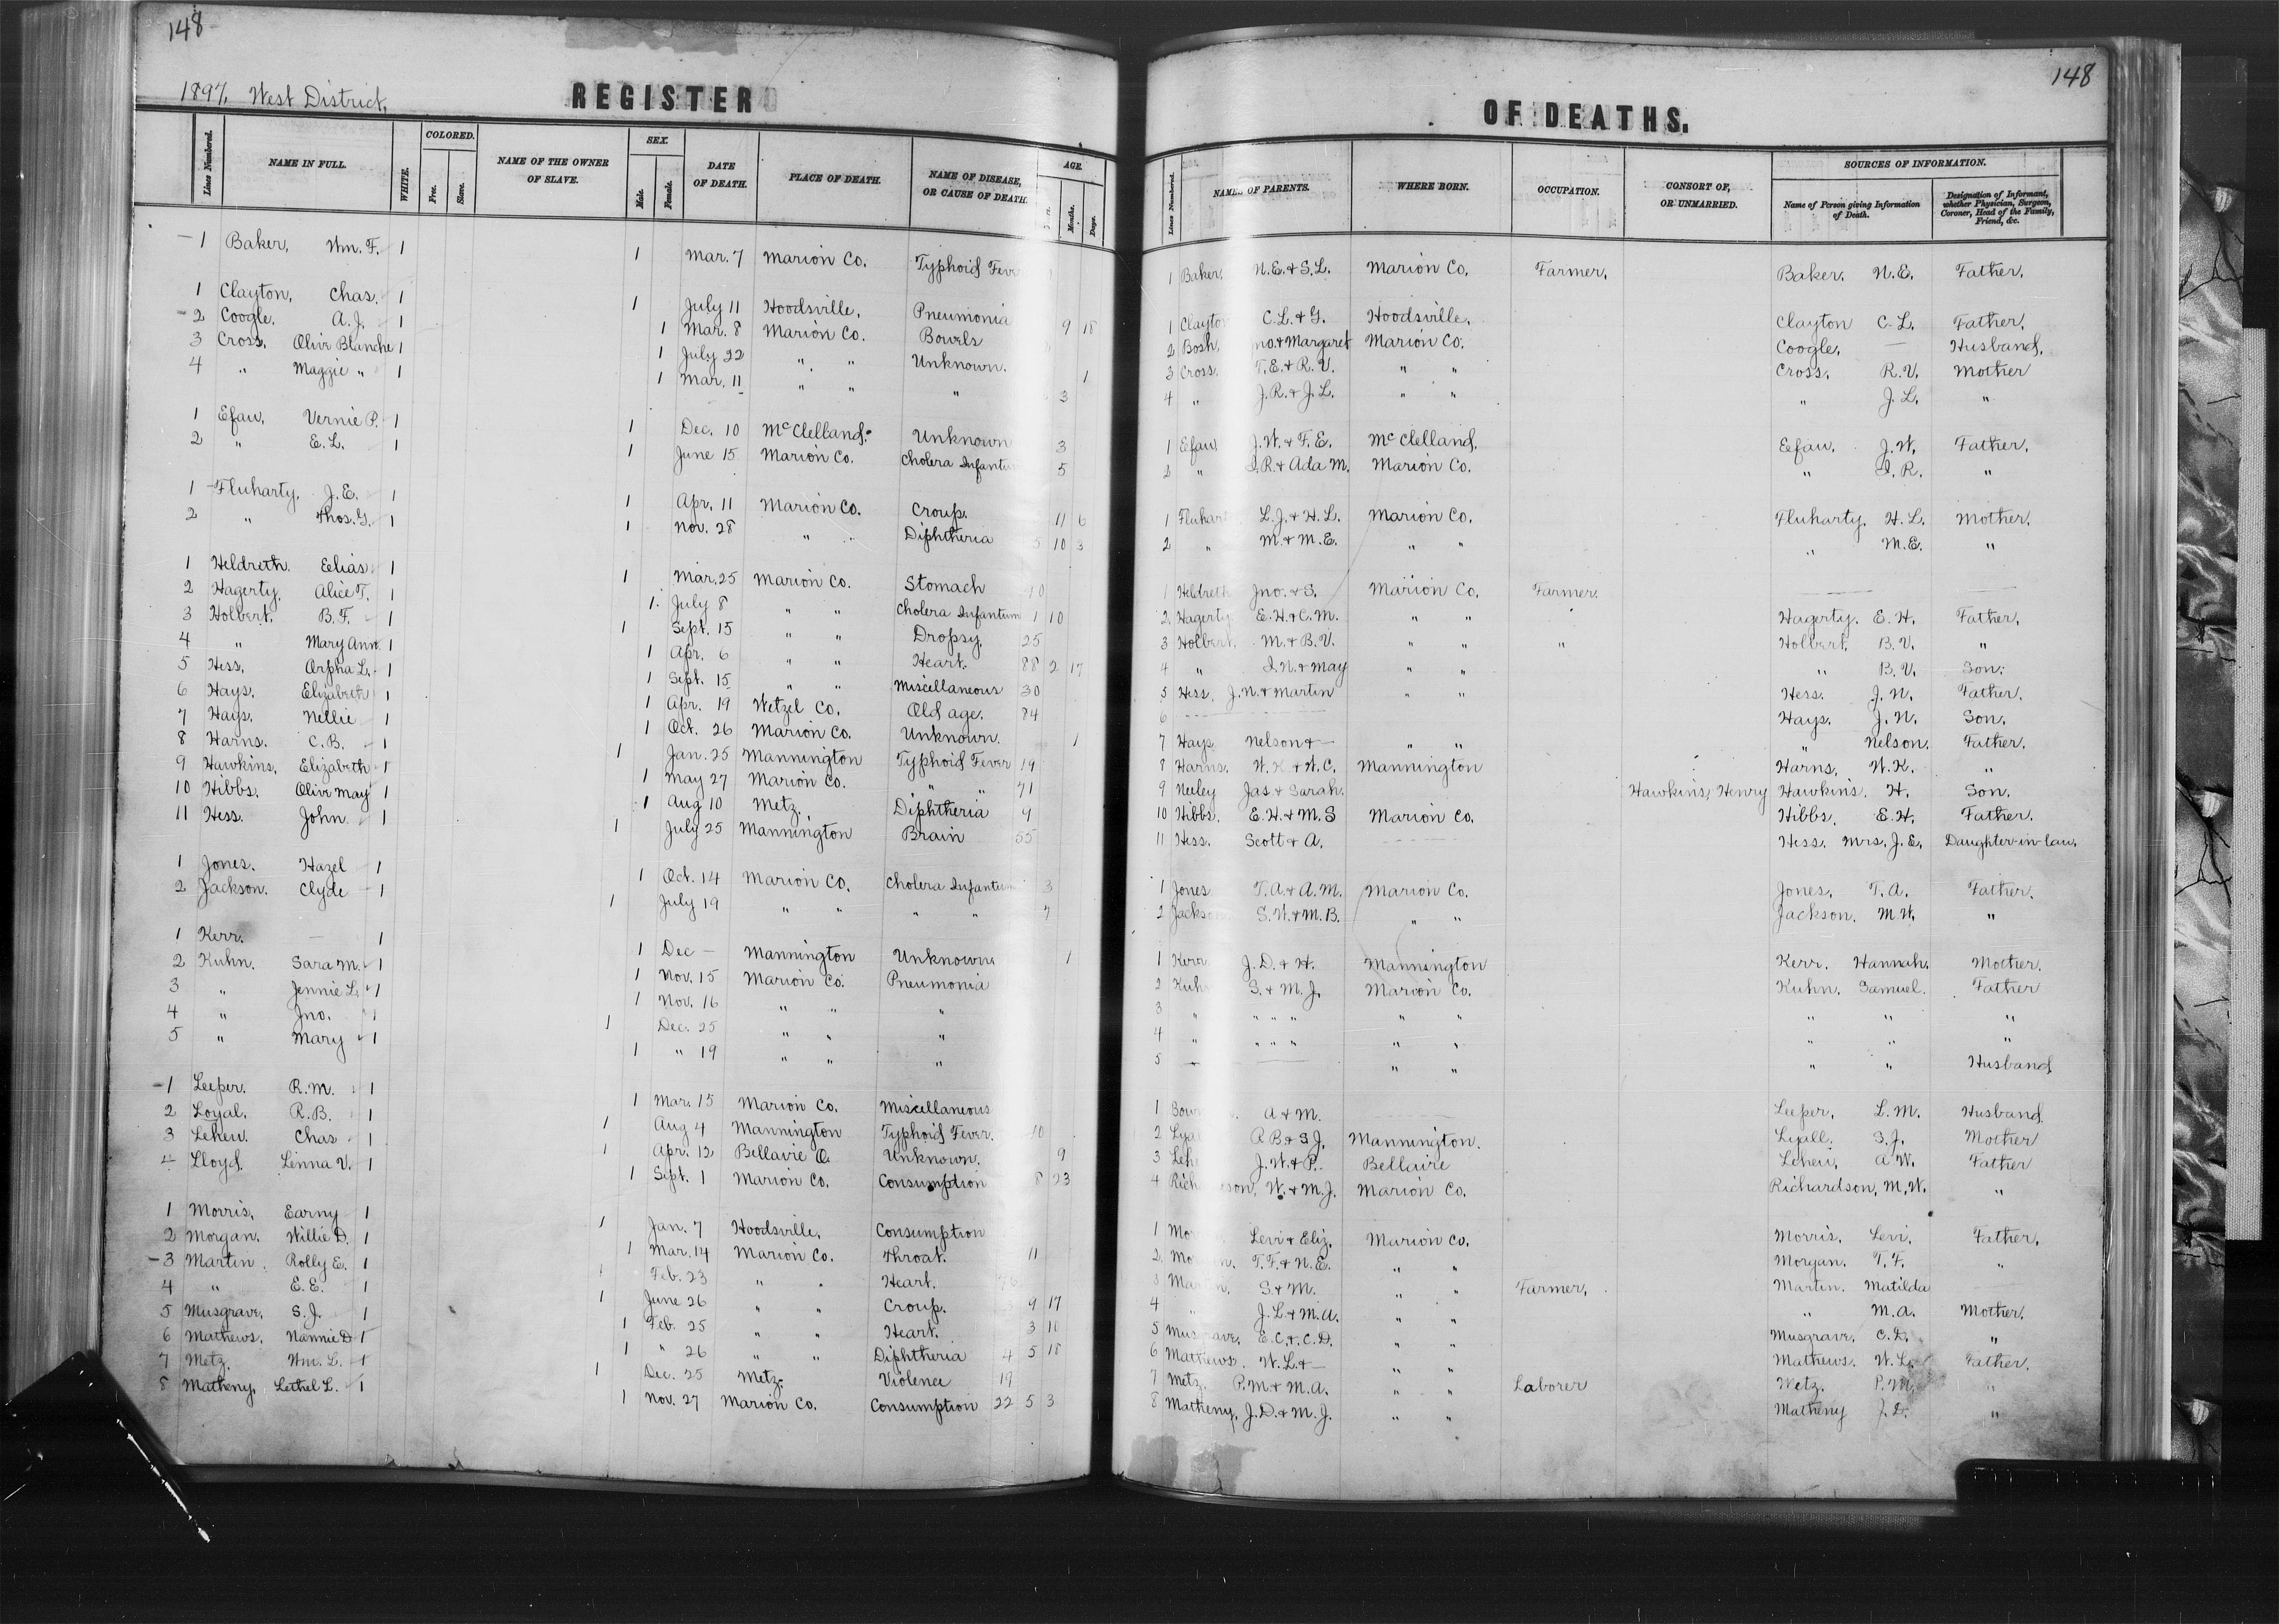 148
1897. West District.
REGISTER
Lines Numbered. NAME IN FULL. WHITE. COLORED. Free. Slave. NAME OF THE OWNER OF SLAVE. SEX. Male. Female. DATE OF DEATH. PLACE OF DEATH. NAME OF DISEASE, OR CAUSE OF DEATH. AGE. Months. Days.
1 Baker, Wm. F. 1 1 Mar. 7 Marion Co. Typhoid Fever
1 Clayton, Chas. 1 1 July 11 Hoodsville, Pneumonia 9 18
2 Coogle, A. J. 1 1 Mar. 8 Marion Co. Bowels
3 Cross, Olive Blanche 1 1 July 22 " " Unknown. 1
4 " Maggie " 1 1 Mar. 11 " " " 3
1 Efaw, Vernie P. 1 1 Dec. 10 McClelland. Unknown 3
2 " E. L. 1 1 June 15 Marion Co. Cholera Infantum 5
1 Fluharty, J. E. 1 1 Apr. 11 Marion Co. Croup. 11 6
2 " Thos. G. 1 1 Nov. 28 " " Diphtheria 5 10 3
1 Heldreth. Eelias 1 1 Mar. 25 Marion Co. Stomach
2 Hagerty, Alice T. 1 1 July 8 " " Cholera Infantum 1 10
3 Holbert. B. F. 1 1 Sept. 15 " " Dropsy. 25
4 " Mary Ann. 1 1 Apr. 6 " " Heart. 88 2 17
5 Hess, Orpha L. 1 1 Sept. 15 " " Miscellaneous 30
6 Hays, Elizabeth 1 1 Apr. 19 Wetzel Co. Old age. 84
7 Hays, Nellie 1 1 Oct. 26 Marion Co. Unknown. 1
8 Harns. C. B. 1 1 Jan. 25 Mannington Typhoid Fever 19
9 Hawkins, Elizabeth 1 1 May 27 Marion Co. " " 71
10 Hibbs. Olive May 1 1 Aug 10 Metz. Diphtheria 9
11 Hess. John. 1 1 July 25 Mannington Brain 55
1 Jones. Hazel 1 1 Oct. 14 Marion Co. Cholera Infantum 3
2 Jackson. Clyde 1 1 July 19 " " " " 7
1 Kerr. — 1 1 Dec — Mannington Unknown 1
2 Kuhn. Sara M. 1 1 Nov. 15 Marion Co. Pneumonia
3 " Jennie L. 1 1 Nov. 16 " " "
4 " Jno. 1 1 Dec. 25 " " "
5 " Mary 1 1 " 19 " " "
1 Leeper. R. M. 1 1 Mar. 15 Marion Co. Miscellaneous
2 Loyal, R. B. 1 1 Aug 4 Mannington Typhoid Fever. 10
3 Leheu. Chas 1 1 Apr. 12 Bellaire O. Unknown. 9
4 Lloyd. Linna V. 1 1 Sept. 1 Marion Co. Consumption 8 23
1 Morris, Earny 1 1 Jan. 7 Hoodsville, Consumption
2 Morgan. Willie D. 1 1 Mar. 14 Marion Co. Throat. 11
3 Martin. Rolly E. 1 1 Feb. 23 " " Heart. 76
4 " E. E. 1 1 June 26 " " Croup. 9 17
5 Musgrave, S. J. 1 1 Feb. 25 " " Heart. 3 10
6 Mathews, Nannie D 1 1 " 26 " " Diphtheria 4 5 18
7 Metz. Wm. L. 1 1 Dec. 25 Metz. Violence 19
8 Matheny, Lethel L. 1 1 Nov. 27 Marion Co. Consumption 22 5 3
148
OF DEATHS.
Lines Numbered. NAMES OF PARENTS. WHERE BORN. OCCUPATION. CONSORT OF, OR UNMARRIED. SOURCES OF INFORMATION. Name of Person giving Information of Death. Designation of Informant, whether Physician, Surgeon, Coroner, Head of the Family, Friend, &c.
1 Baker, N. E. & S. L. Marion Co. Farmer, Baker, N. E. Father.
1 Clayton C. L. & G. Hoodsville. Clayton C. L. Father.
2 Bosh, Jno. & Margaret Marion Co. Coogle, — Husband.
3 Cross. T. E. & R. V. " " Cross, R. V. Mother
4 " J. R. & J. L. " " " J. L. "
1 Efaw J. W. & F. E. McClelland. Efaw, J. W. Father.
2 " I. R. & Ada M. Marion Co. " I. R. "
1 Fluharty L. J. & H. L. Marion Co. Fluharty. H. L. Mother.
2 " M. & M. E. " " " M. E. "
1 Heldreth Jno. & S. Marion Co. Farmer.
2 Hagerty E. H. & C. M. " " Hagerty. E. H. Father.
3 Holbert. M. & B. V. " " " Holbert. B. V. "
4 " I. N. & May " " " B. V. Son.
5 Hess, J. N. & Martin " " Hess. J. N. Father.
6 Hays. J. N. Son.
7 Hays Nelson & — " " " Nelson. Father.
8 Harns. W. K. & W. C. Mannington Harns, W. K. "
9 Neeley Jas & Sarah. Hawkins, Henry Hawkins, H. Son.
10 Hibbs. E. H. & M. S Marion Co. Hibbs. E. H. Father.
11 Hess. Scott & A. Hess. Mrs. J. E. Daughter-in-law.
1 Jones T. A. & A. M. Marion Co. Jones. T. A. Father.
2 Jackson S. W. & M. B. " " Jackson. M. W. "
1 Kerr J. D. & H. Mannington Kerr. Hannah. Mother.
2 Kuhn S. & M. J. Marion Co. Kuhn. Samuel. Father
3 " " " " " " " " "
4 " " " " " " " " "
5 — — " " " " Husband
1 A & M. Leeper, L. M. Husband
2 R B & S J. Mannington. Lyall. S. J. Mother
3 J. W. & P. Bellaire Leheu, A W. Father
4 Richardson, W. & M. J. Marion Co. Richardson, M, W. "
1 Levi & Eliz. Marion Co. Morris. Levi. Father.
2 T. F. & N. E. " " Morgan. T. F. "
3 Martin S. & M. " " Farmer. Martin. Matilda
4 " J. L. & M. A. " " " M. A. Mother.
5 Musgrave, E. C. & C. D. " " Musgrave. C. D. "
6 Mathews. W. L. & — " " Mathews. W. L. Father.
7 Metz. P. M. & M. A. " " Laborer Metz. P. M. "
8 Matheny, J. D. & M. J. " " Matheny J. D. "